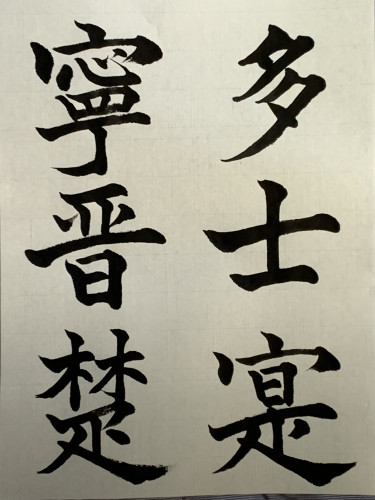 多士寔
寧晋楚